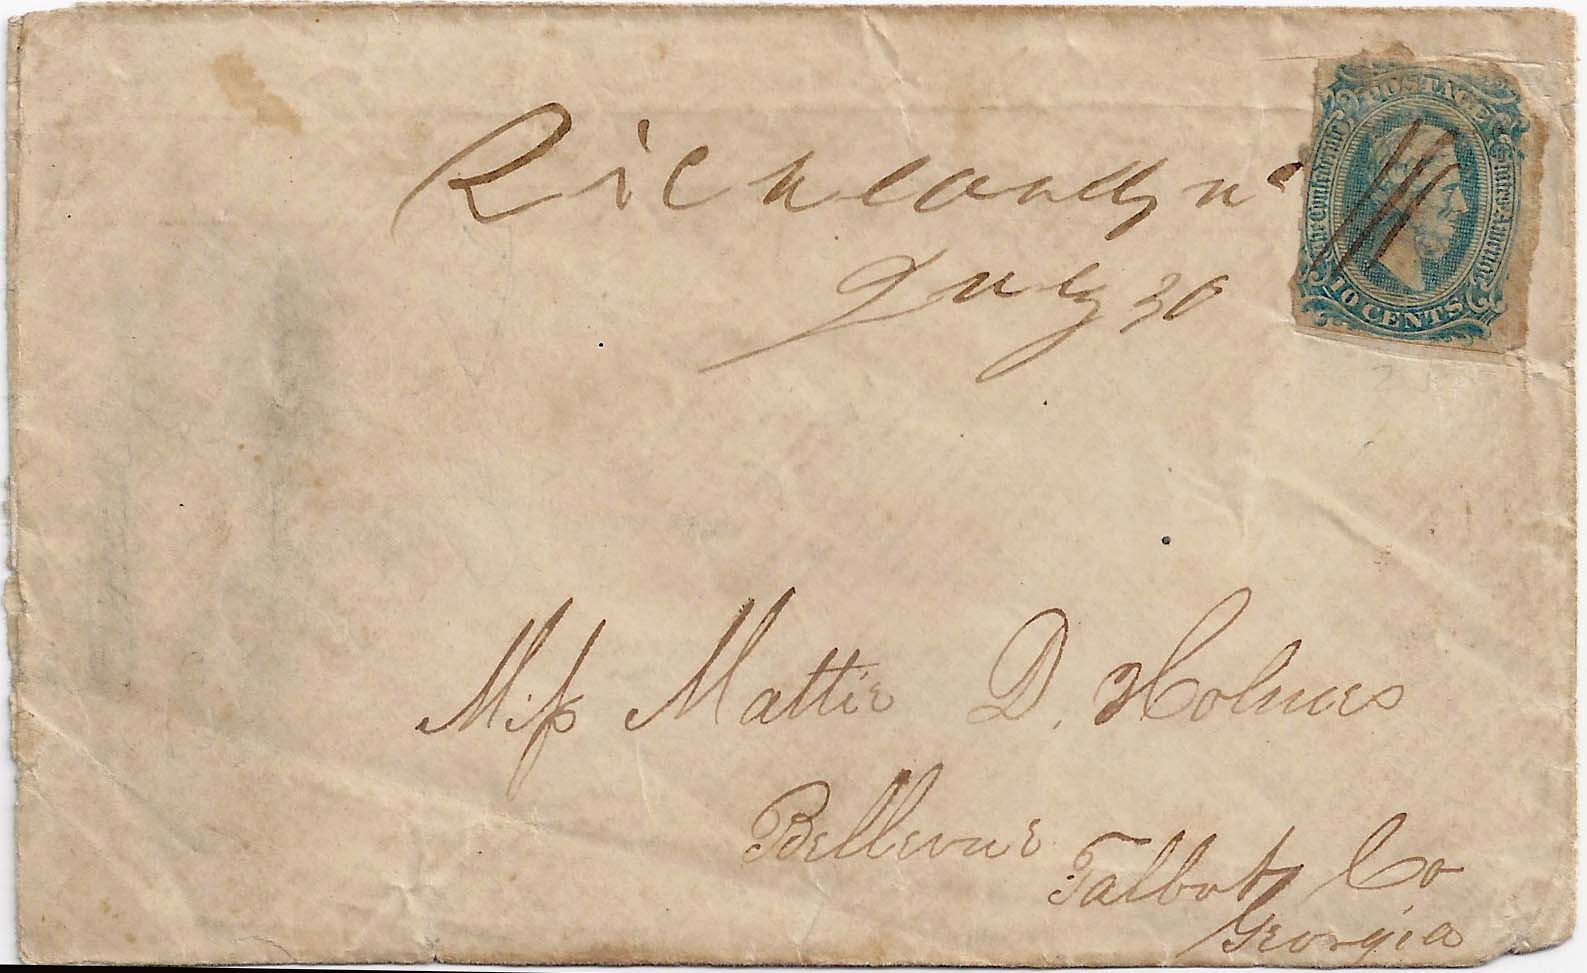 Richland
July 30
POSTAGE
The Confederate States of America
10 CENTS
Miss Mattie D. Holmes
Bellevue
Talbot Co
Georgia